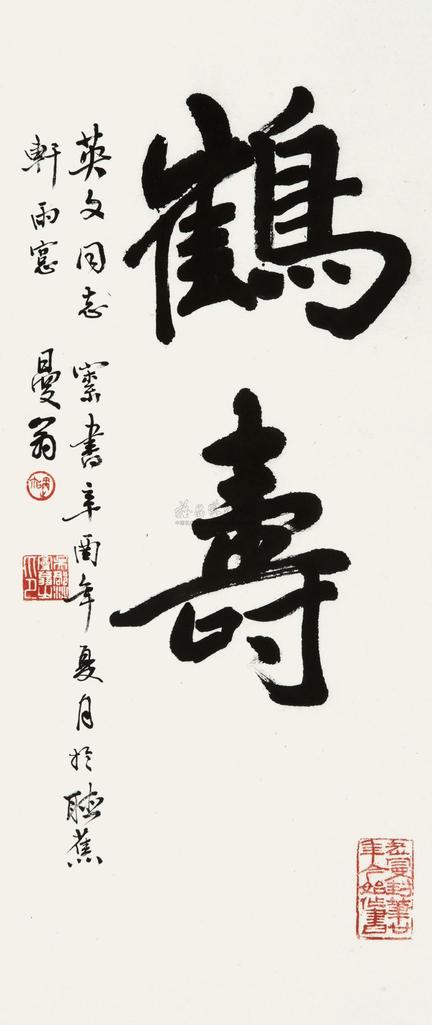 鶴壽
英文同志 索書 辛酉年夏月於聽蕉
軒雨窗 曼翁